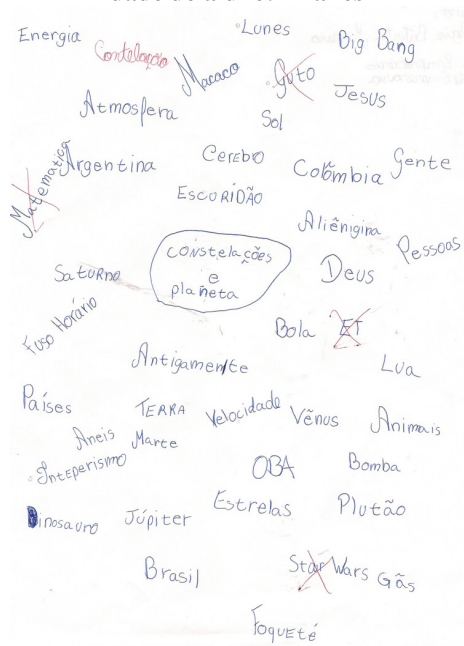 Energia
Contelação
Macaco
Lunes
Guto
Big Bang
Jesus
Atmosfera
Sol
Matematica
Argentina
Cerebro
Colômbia
Gente
ESCURIDÃO
Aliênigina
Pessoas
constelações
e
planeta
Saturno
Deus
Fuso Horário
Bola
ET
Antigamente
Lua
Países
TERRA
Velocidade
Vênus
Animais
Aneis
Marte
Inteperismo
OBA
Bomba
Dinosauro
Júpiter
Estrelas
Plutão
Brasil
Star Wars
Gãs
Foqueté